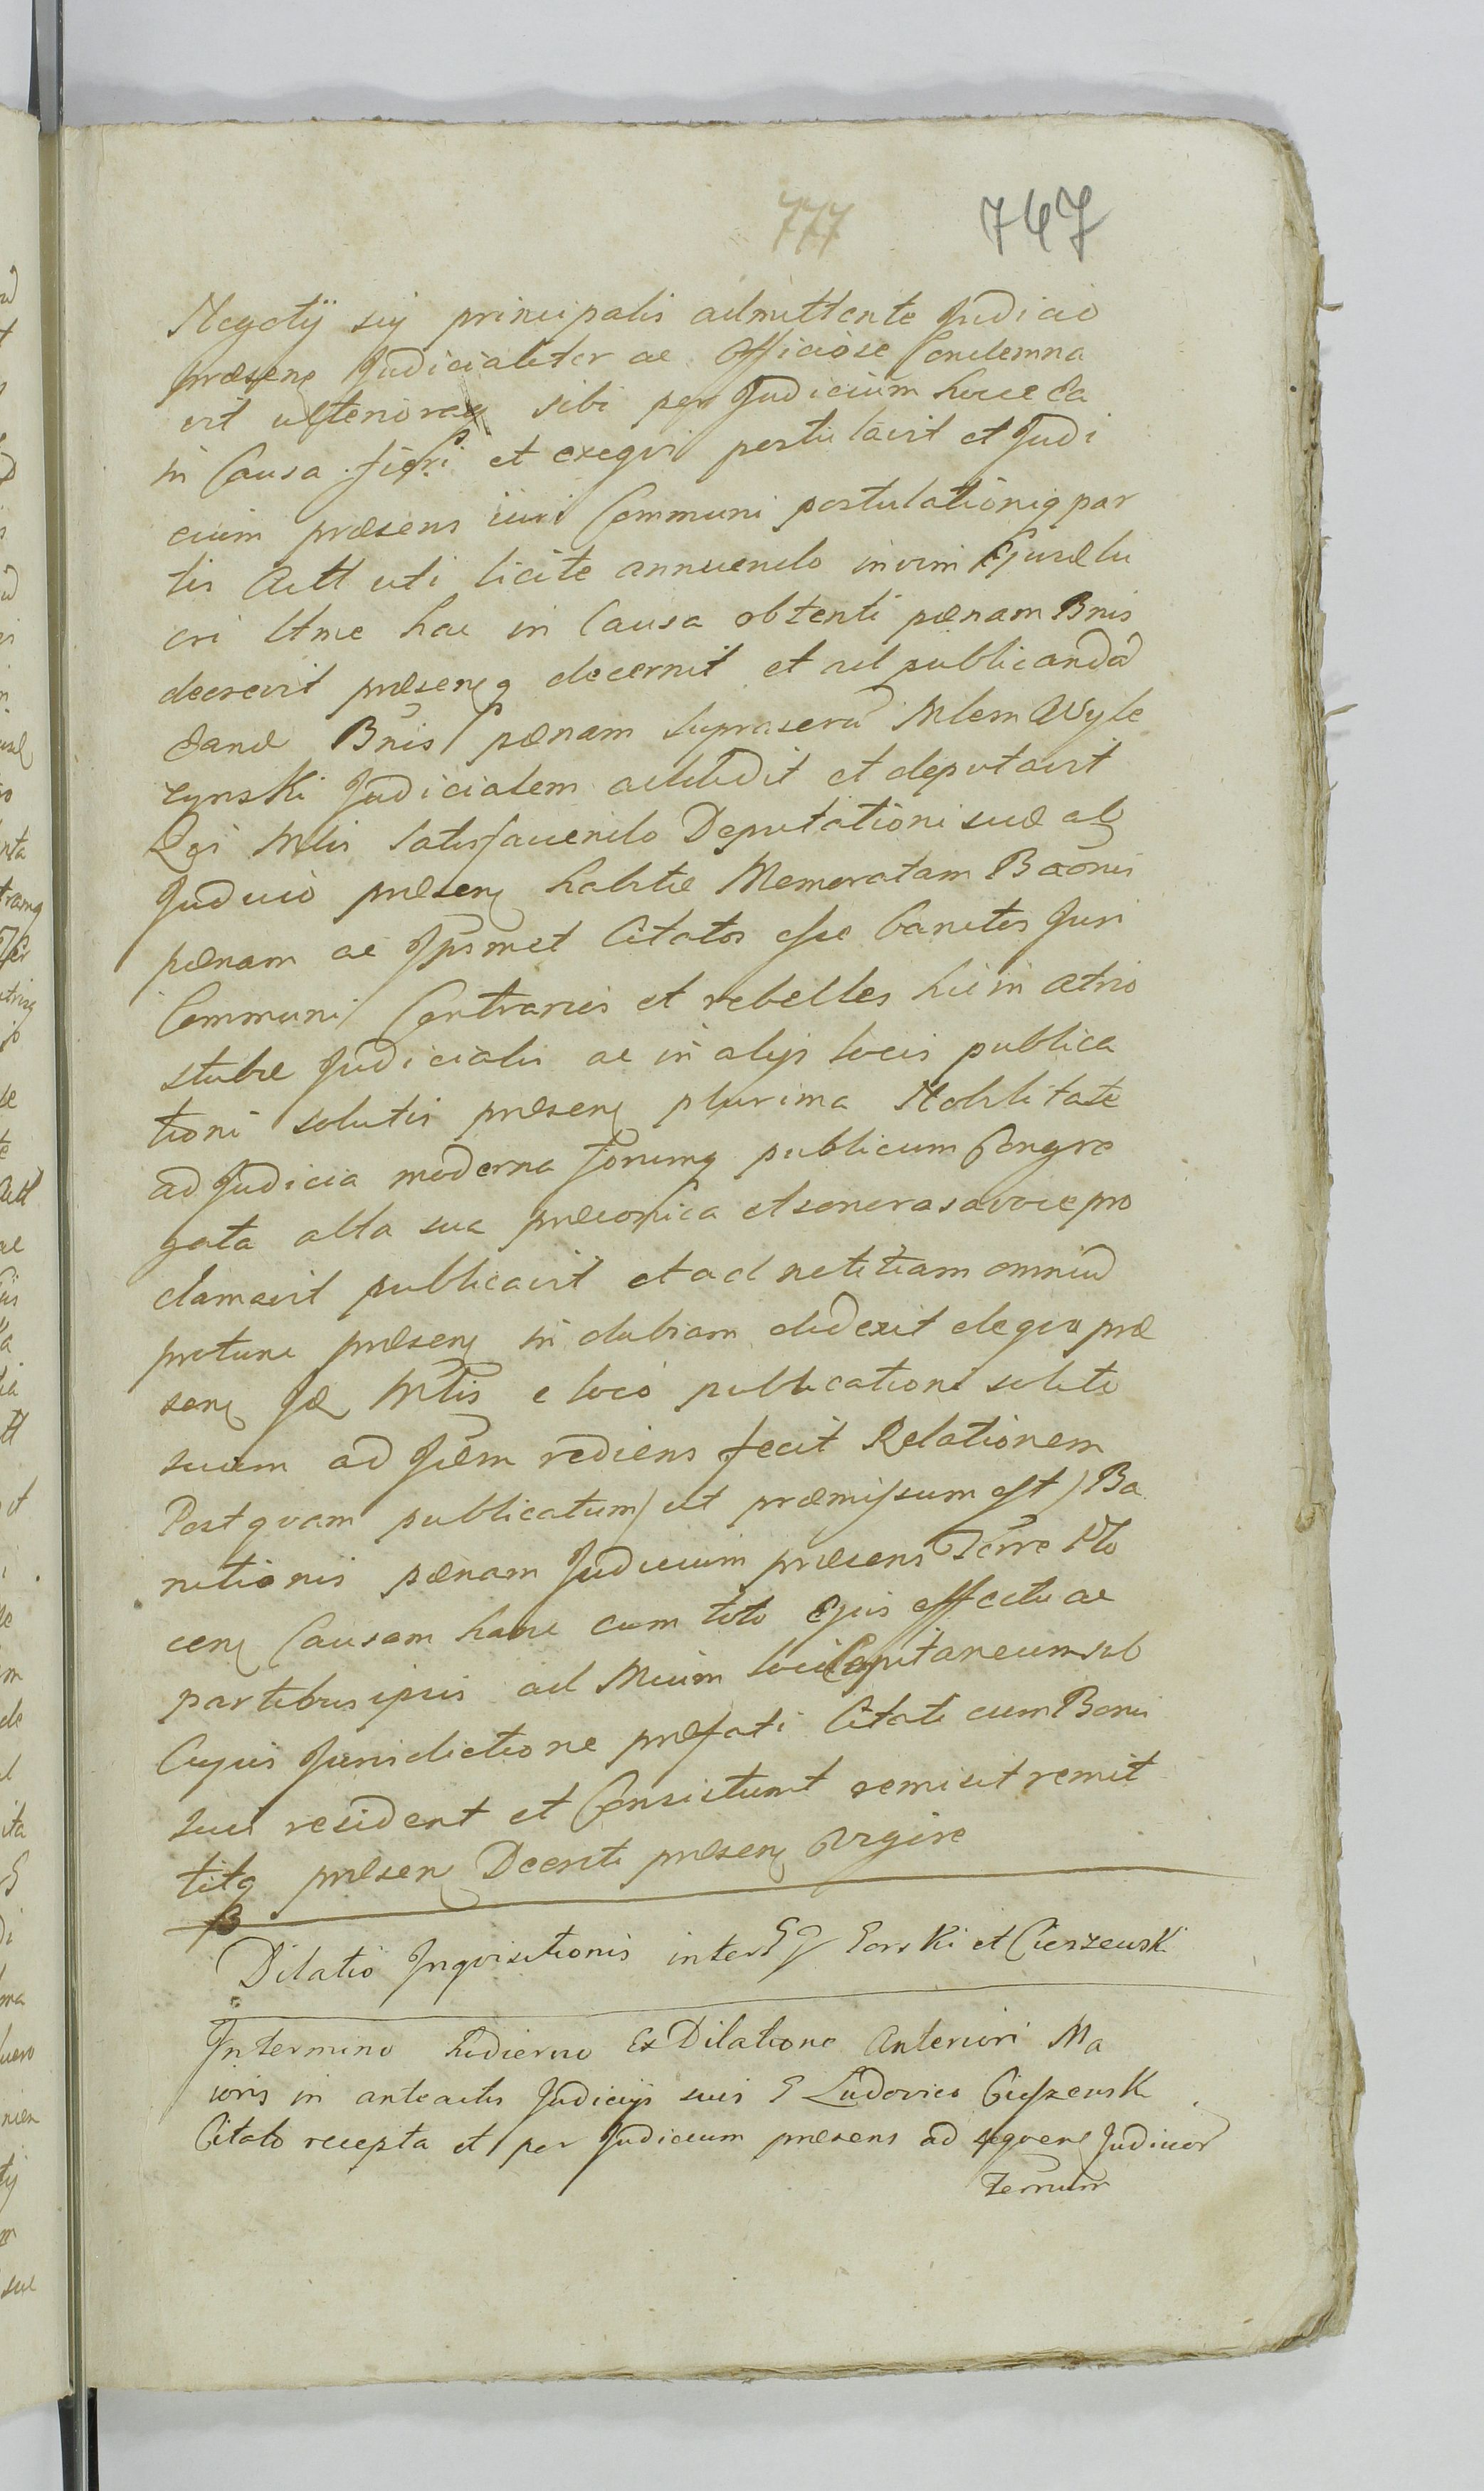 777 767
Negotij sui principalis admittente Judicio
præsen Judicialiter ac Officiose Condemna
vit ulterioraq sibi per Judicium hocce ea
in Causa fieri et exequi postulavit et Judi
cium præsens iuri Communi postulationiq par
tis Actt uti licite annuendo in vim Ejusdē lu
cri Ittme hac in Causa obtenti pænam Bnis
decrevit præsenq decernit et ad publicandā
eand Bnis pænam suprascrū Mlem Wyle
zynski Judicialem addidit et deputavit
Qui Mlis satisfaciendo Deputationi suæ ab
Judicio præsen habitæ Memoratam Baonis
pænam ac Ipsmet Citatos esse banitos Juri
Communi Contrarios et rebelles hic in atrio
stubæ Judicialis ac in alijs locis publica
tioni solutis præsen plurima Nobilitate
ad Judicia moderna forumq publicum Congre
gata alta sua præconica et sonorasa voce pro
clamavit publicavit et ad notitiam omniū
protunc præsen in dubiam deduxit de quo præ
sen Jd Mlis e loco publicationi solito
suam ad Jdem rediens fecit Relationem
Post quam publicatum) ut præmissum est) Ba
nitionis pænam Judicium præsens Terre Plo
cen Causam hanc cum toto Ejus effectu ac
partibus ipsis ad Mcum loci Capitaneum sub
Cujus Jurisdictione præfati Citati cum Bonis
suis resident et Consistunt remisit remit
titq præsen Decreti præsen Vigore
Dilatio Inqvisitionis inter GG Gorski et Cieszewski
In termino hodierno Ex Dilatione Anteriori Ma
ioris in anteactis Judicijs suis G Ludovico Cieszewsk
Citato recepta et per Judicium præsens ad seqven Judicior
Terminū